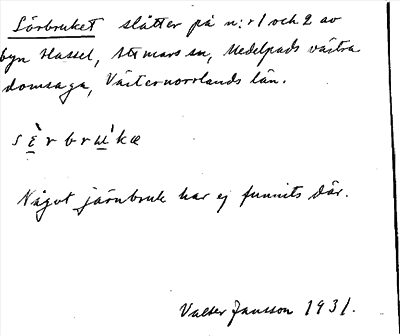 Sörbruket slåtter på n:r 1 och 2 av
byn Hassel, sn, Medelpads västra
domsaga, Västernorrlands län.
sè̱rbrṳ'kæ
Något järnbruk har ej funnits där.
Valter Jansson 1931.